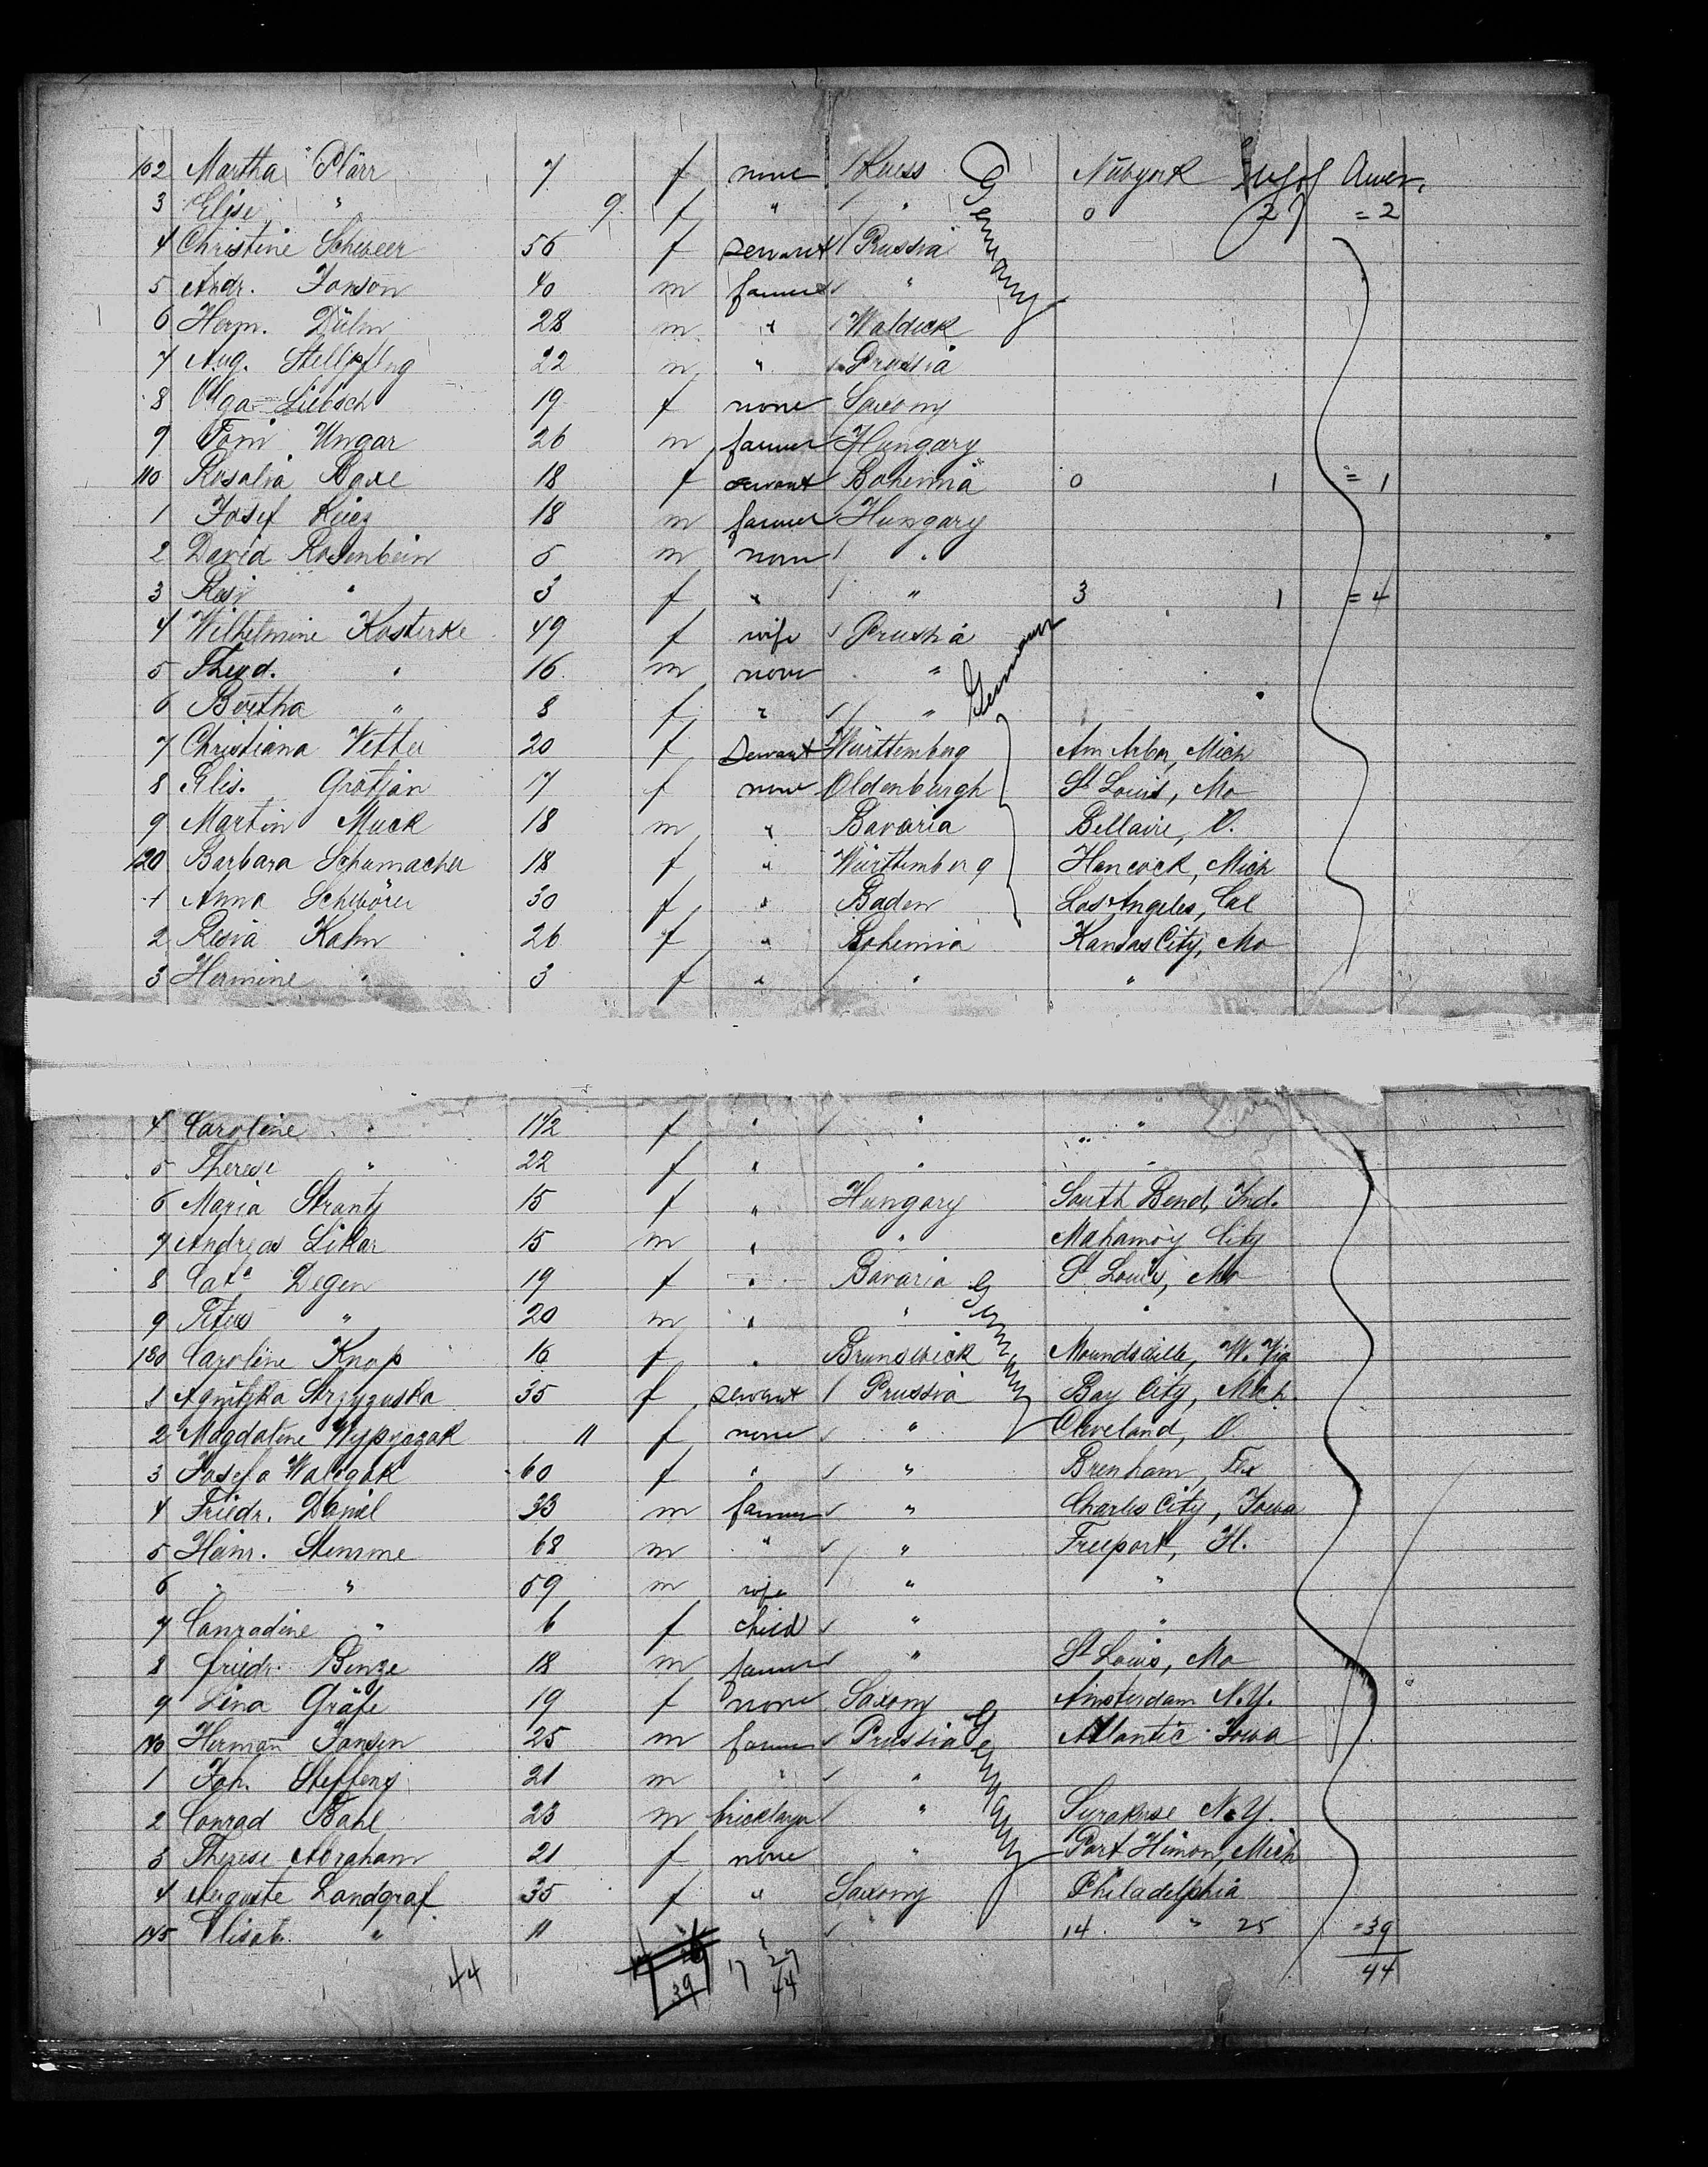 102 Martha Plärr 7 f none Reuss Germany Nübyork Amer.
3 Elise " 9 f " " 0 2 = 2
4 Christine Scheveer 56 f servant Prussia
5 Andr. Janson 40 m farmer "
6 Herm. Dülm 28 m " Waldeck
7 Aug. 22 m " Prussia
8 Olga Liebsch 19 f none Saxony
9 Toni Ungar 26 m farmer Hungary
110 Rosalia 18 f servant Bohemia 0 1 = 1
1 Josef 18 m farmer Hungary
2 David Rosenbein 5 m none "
3 Resi " 3 f " " 3 1 = 4
4 Wilhelmine Kosterke 49 f wife Prussia
5 Theod. " 16 m none " German
6 Bertha " 8 f " "
7 Christiana Vetter 20 f servant Württemberg Ann Arbor, Mich
8 Elis. Grotjan 17 f none Oldenburgh St Louis, Mo
9 Martin Muck 18 m " Bavaria Bellaire, O.
120 Barbara Schumacher 18 f " Württemberg Hancock, Mich
1 Anna Schwörer 30 f " Baden Los Angeles, Cal
2 Resia Kahn 26 f " Bohemia Kansas City, Mo
3 Hermine " 3 f " " "
4 Caroline " 1 1/2 f " " "
5 Therese " 22 f " " "
6 Maria Strantz 15 f " Hungary South Bend, Ind.
7 Andreas Likar 15 m " " Mahamoy City
8 Cath Degen 19 f " Bavaria St Louis, Mo
9 " 20 m " " Germany "
130 Caroline Knop 16 f " Brunswick Moundsville, W. Vig
1 35 f servant Prussia Bay City, Mich.
2 Magdalene 11 f none " Cleveland, O.
3 Josefa Walczak 60 f " " Brenham, Tex
4 Friedr. Daniel 33 m farmer " Charles City, Iowa
5 Heinr. Stemme 62 m " " Freeport, Il.
6 " " 59 m wife " "
7 Conradine " 6 f child " "
8 Friedr. Benze 18 m farmer " St Louis, Mo
9 Lina Gräfe 19 f none Saxony Amsterdam N.Y.
140 Herman Jansen 25 m farmer Prussia Germany Atlantic Iowa
1 Joh. Steffens 21 m " "
2 Conrad Bahl 23 m bricklayer " Syrakuse N.Y.
3 Therese Abraham 21 f none " Port Himon, Mich
4 Auguste Landgraf 35 f " Saxony Philadelphia
145 Elisab. " 11 " " 14 " 25 = 39
44 39 17 27 44 44